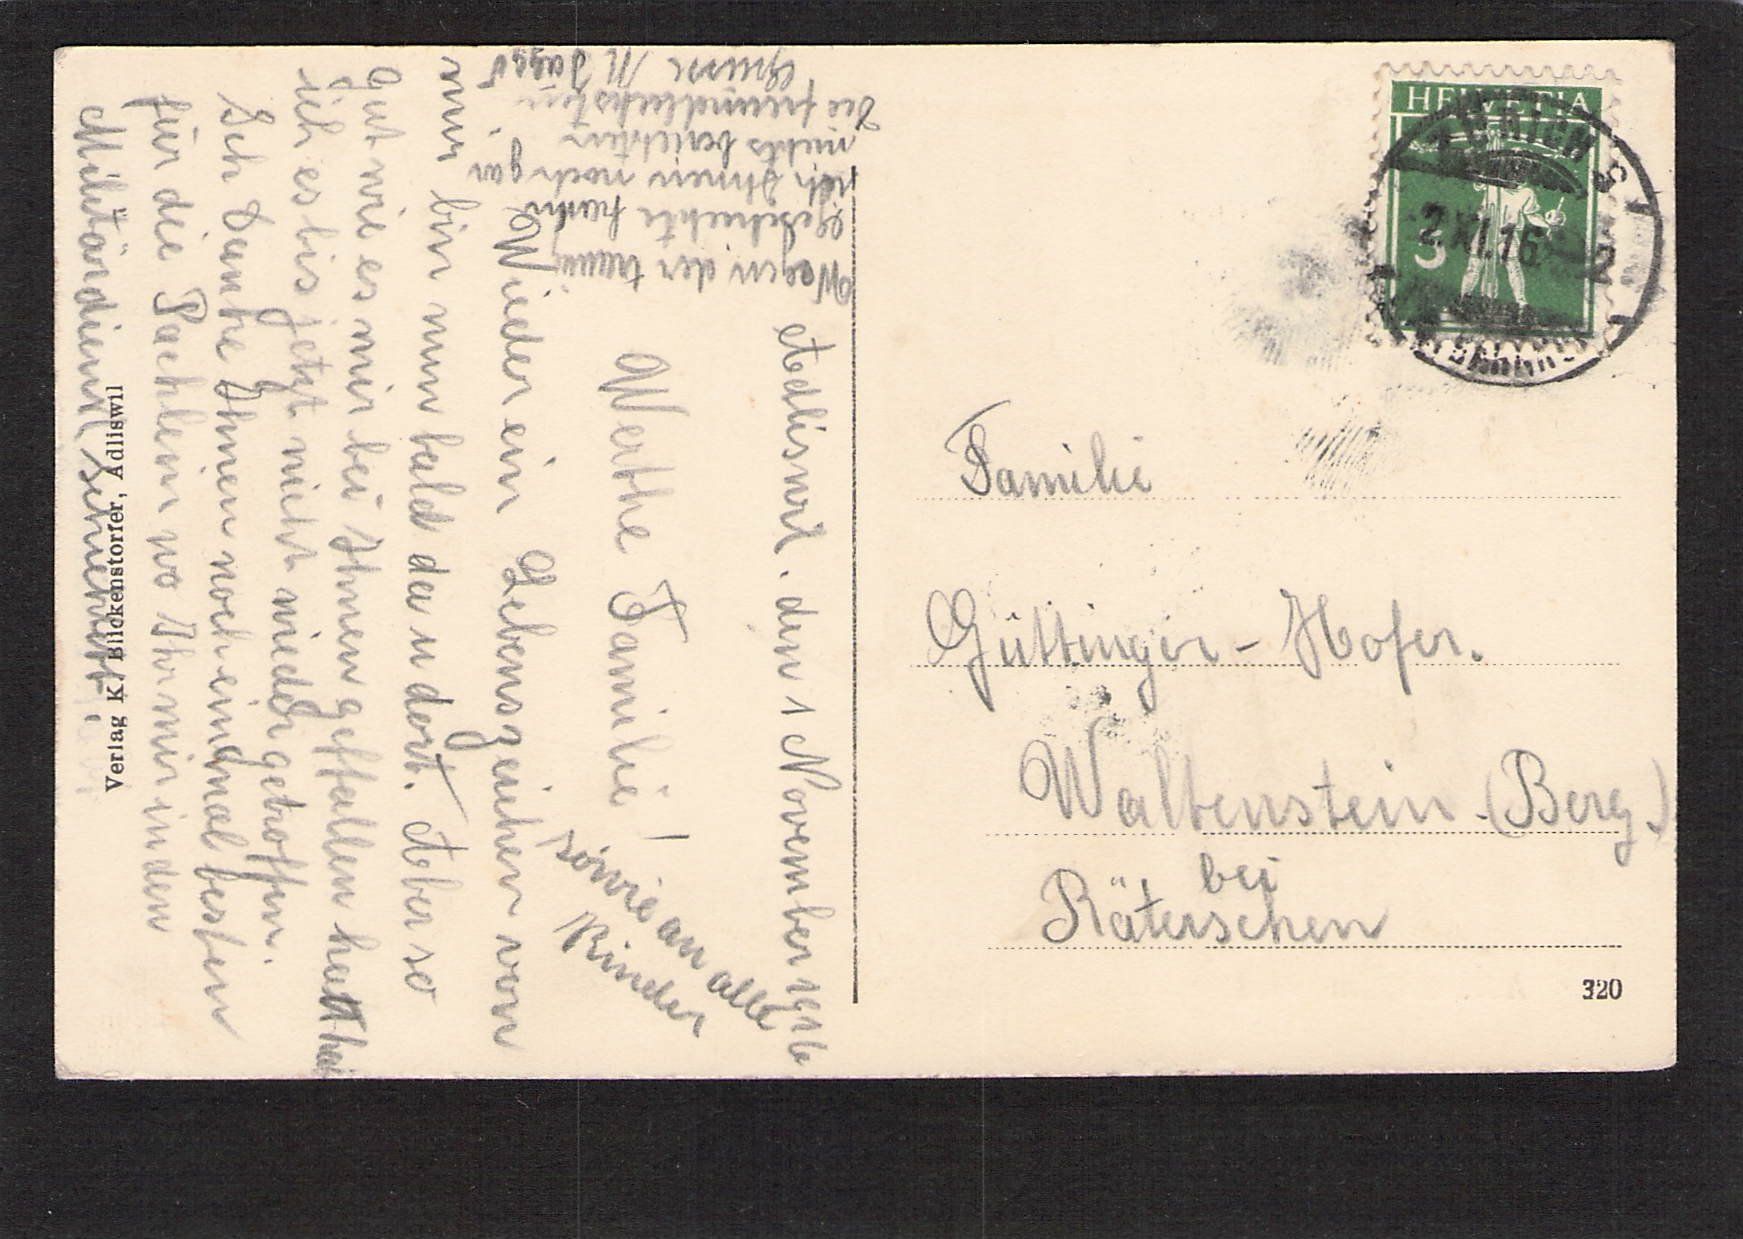 Adliswil. den 1 November 1916
Werthe Familie!
Wieder ein Lebenszeichen von
mir bin nun bald da u dort. Aber so
gut wie es mir bei Ihnen gefallen
ich es bis jetzt nicht wieder getroffen.
Ich Danke Ihnen noch einmal bestens
für die Päcklein wo Ihr mir in den
Militärdienst
Wegen der
Geschichte
ich Ihnen noch gar
nichts berichten
Die freundlichsten
Grüsse
sowie an alle
Kinder
Verlag K. Blickenstorfer, Adliswil
HELVETIA
5
ZÜRICH
2.XI.16
2
Familie
Güttinger-Hofer.
Waltenstein (Berg.)
bei
Räterschen
320